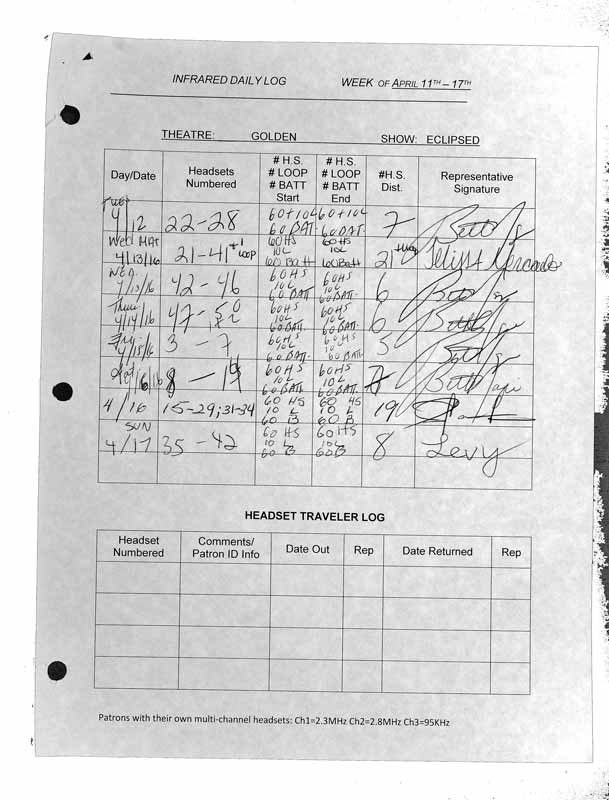 INFRARED DAILY LOG WEEK OF APRIL 11TH – 17TH
THEATRE: GOLDEN SHOW: ECLIPSED
Day/Date
Headsets
Numbered
# H.S.
# LOOP
# BATT
Start
# H.S.
# LOOP
# BATT
End
#H.S.
Dist.
Representative
Signature
Tues
4/12
22-28
60+10L
60 BAT.
60+10L
60 BAT.
7
Wed MAT
4/13/16
21-41 +1
LOOP
60HS
10L
60 Batt
60 HS
10L
60 Batt
21 +
Wed.
4/13/16
42-46
60HS
10L
60 BATT
60HS
10L
60BATT
6
Thur
4/14/16
47-
60HS
10L
60BATT.
60HS
10L
60BATT.
6
Fri
4/15/16
3 - 7
60HS
10L
60 BATT.
60HS
10L
60 BATT.
5
Sat
16/16
8 -
60HS
10L
60 BATT.
60HS
10L
60 BATT.
4/16
15-29; 31-34
60 HS
10 L
60 B
60 HS
10 L
60 B
19
SUN
4/17
35 - 42
60 HS
10 L
60 B
60HS
10L
60B
8
Levy
HEADSET TRAVELER LOG
Headset
Numbered
Comments/
Patron ID Info
Date Out
Rep
Date Returned
Rep
Patrons with their own multi-channel headsets: Ch1=2.3MHz Ch2=2.8MHz Ch3=95KHz